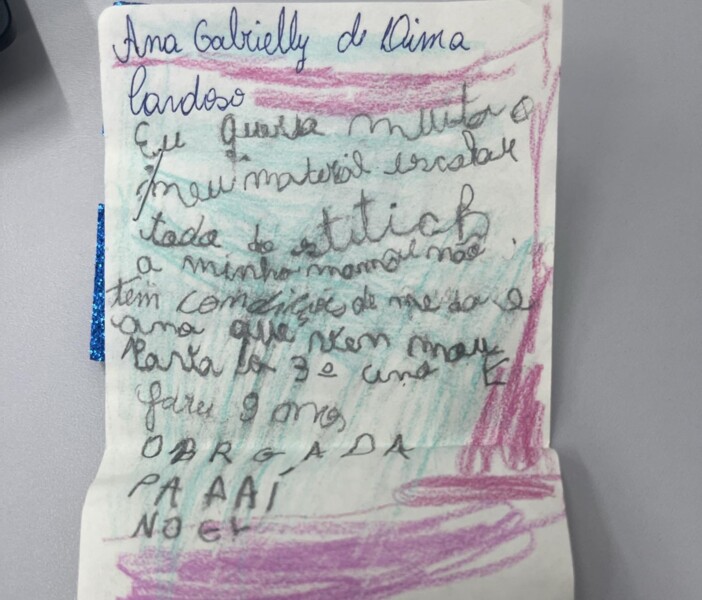 Ana Gabrielly de Lima
Cardoso
Eu queria muito o
meu material escolar
todo do stitich
a minha mamãe não
tem condições de me da e
ano que vem vou
para o 3º ano E
faru 9 anos
OBRGADA
PAAAÍ
NOEL